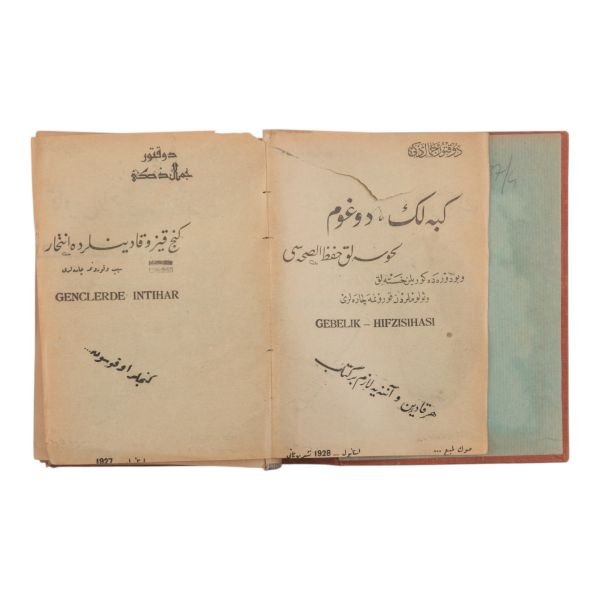 دوقتور
جمال ذكى
كنج قيز و قادينلرده انتحار
GENCLERDE INTIHAR
كنجلر اوقوسون...
1927
دوقتور جمال ذكى
كبه لك، دوغوم
لحوسه لق حفظ الصحه سى
و بو دوره ده كوريلن خسته لق
GEBELIK – HIFZISIHASI
هر قادين و آننه يه لازم بر كتاب
استانبول ... 1928